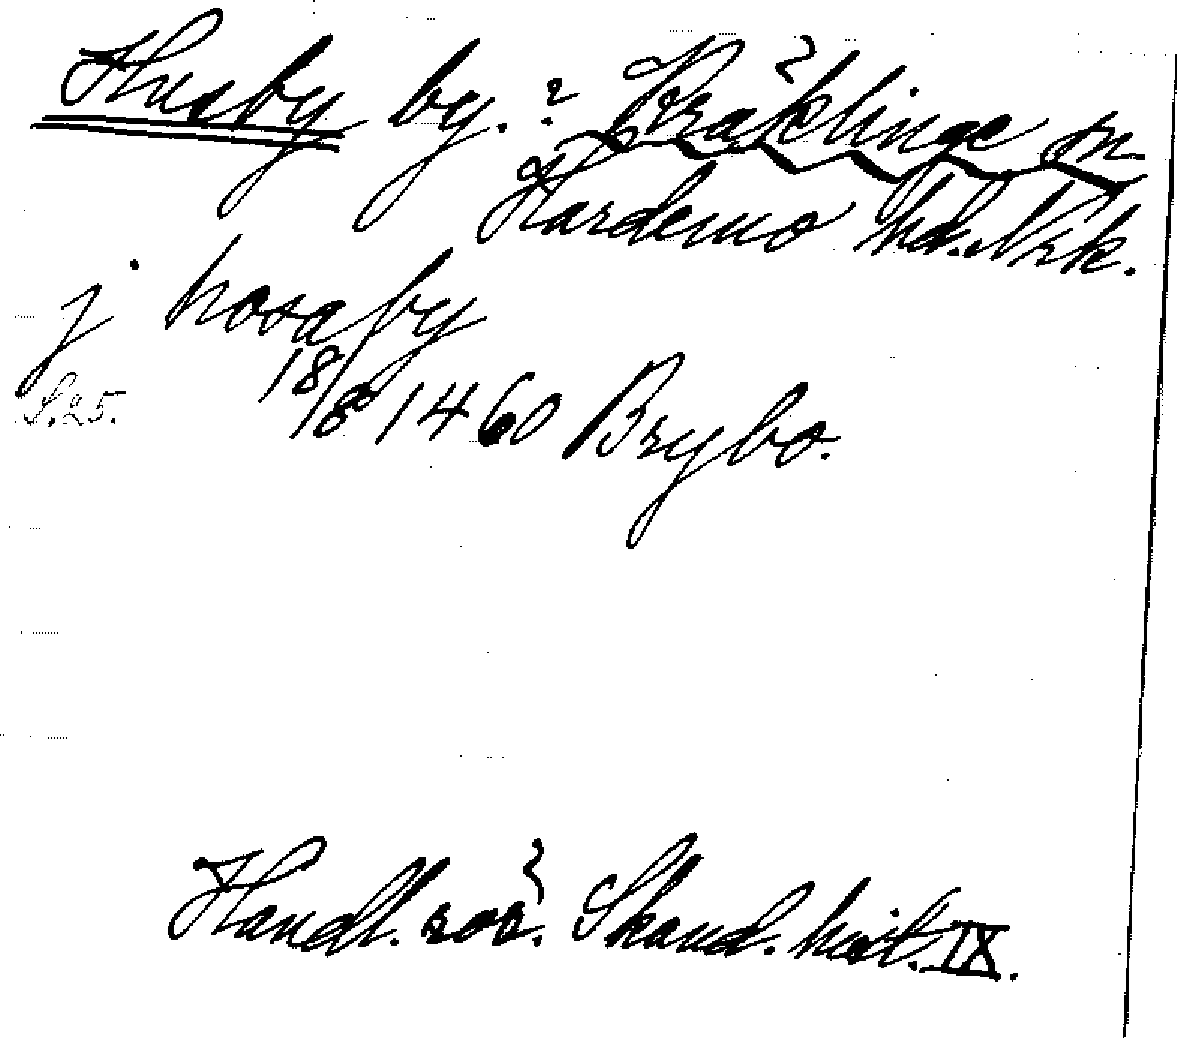 Husby by. ? Kräklinge sn
Hardemo hd. Nrk.
j hosaby
S. 25. 18/8 1460 Brybo.
Handl. rör. Skand. hist. IX.